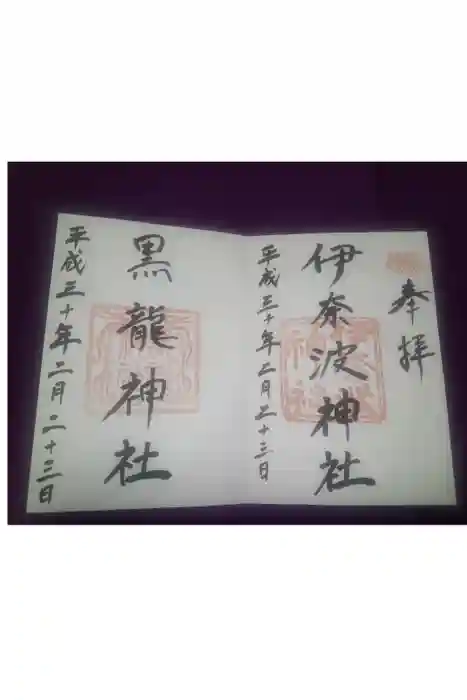 奉拝
伊奈波神社
平成三十年二月二十三日
黒龍神社
平成三十年二月二十三日